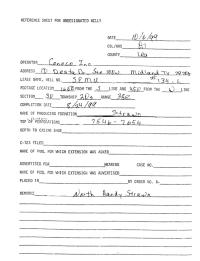 REFERENCE SHEET FOR UNDESIGNATED WELLS
DATE 10/6/99
COUNTY Lea
OPERATOR Conoco Inc
ADDRESS 10 Desta Dr. Ste 100W Midland TX
LEASE NAME, WELL NO. SEMU # 134
FOOTAGE LOCATION FROM THE LINE AND FROM THE LINE
SECTION TOWNSHIP 20s RANGE 38e
COMPLETION DATE
NAME OF PRODUCING FORMATION Strawn
TOP OF PERFORATIONS 7546 - 7654
DEPTH TO CASING SHOE
C-123 FILED
NAME OF POOL FOR WHICH EXTENSION WAS ASKED
ADVERTISED FOR HEARING CASE NO.
NAME OF POOL FOR WHICH EXTENSION WAS ADVERTISED
PLACED IN BY ORDER NO. R-
REMARKS North Hardy Strawn